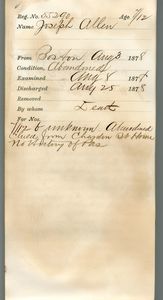 Reg. No. Age 7/12
Name Joseph Allen
From Boston Aug 3 1878
Condition, Abandoned
Examined Aug 8 1878
Discharged Aug 25 1878
Removed
By whom Dead
For Nos.
7/12 unknown Abandoned
from Chardon St Home
No